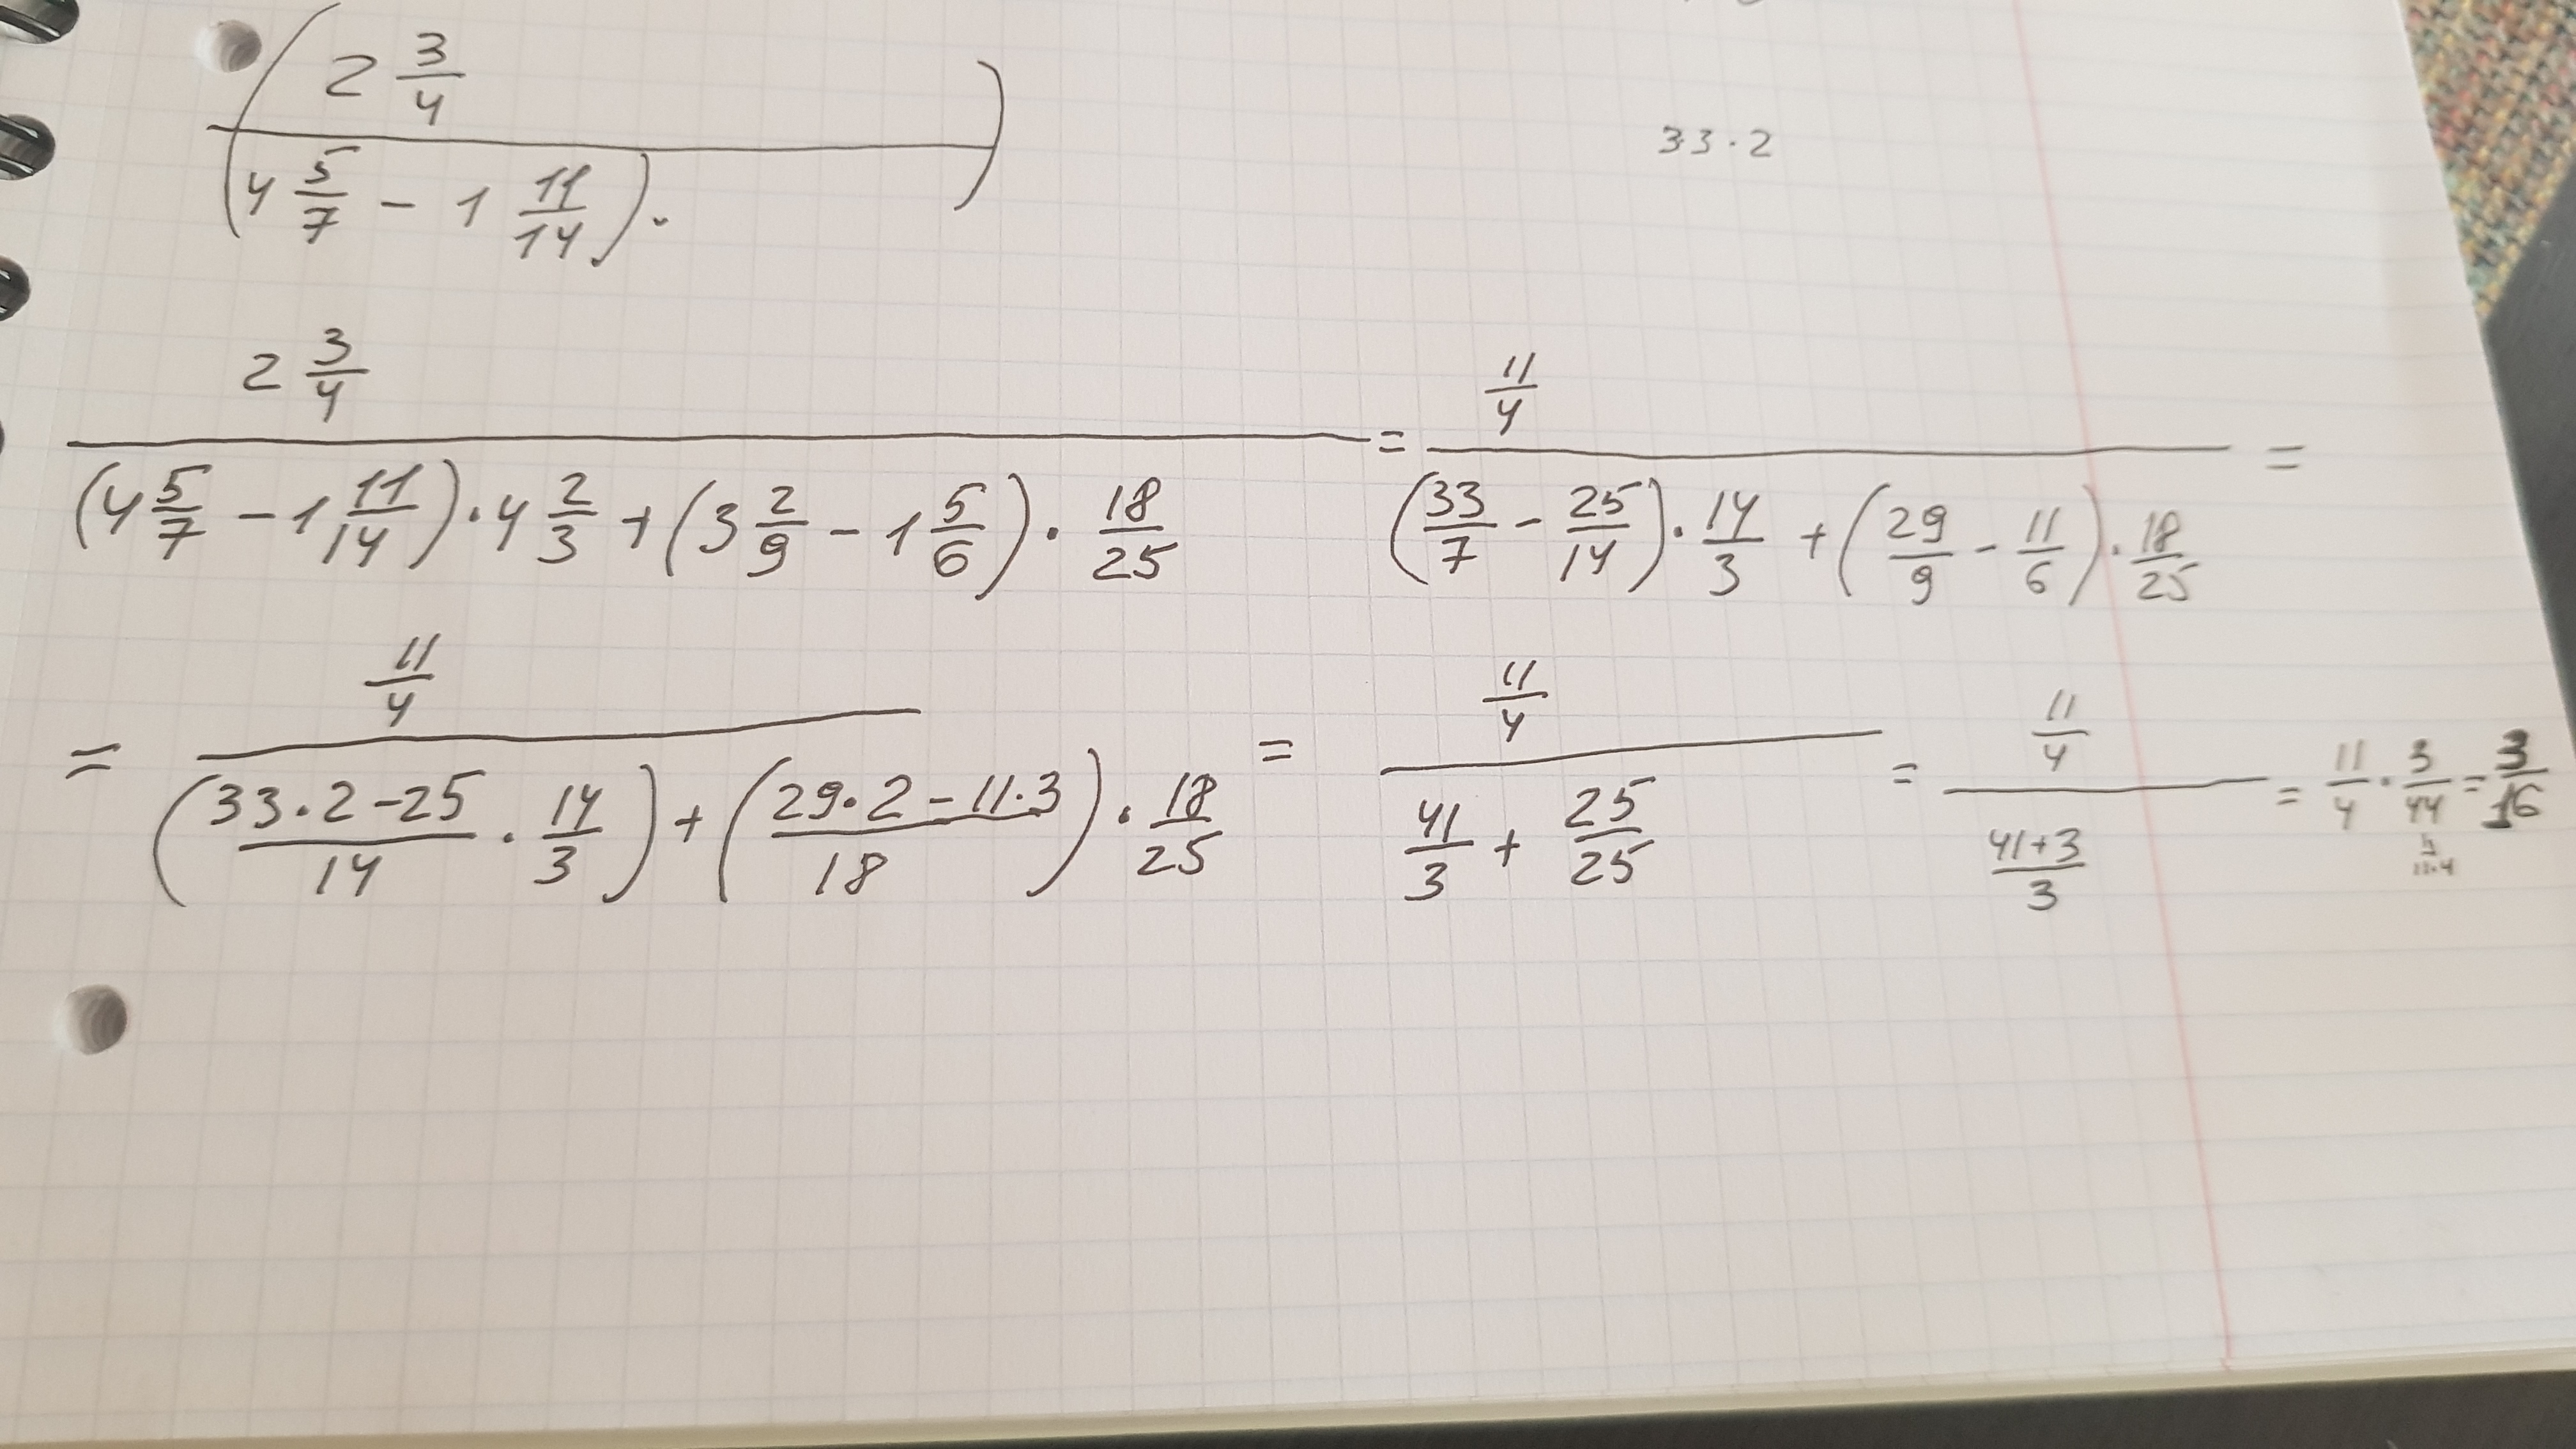 (2 3/4
(4 5/7 - 1 11/14) · )
33·2
2 3/4 / (4 5/7 - 1 11/14) · 4 2/3 + (3 2/9 - 1 5/6) · 18/25 = 11/4 / (33/7 - 25/14) · 14/3 + (29/9 - 11/6) · 18/25 =
= 11/4 / (33·2-25/14 · 14/3) + (29·2-11·3/18) · 18/25 = 11/4 / 41/3 + 25/25 = 11/4 / 41+3/3 = 11/4 · 3/44 = 3/16
11·4